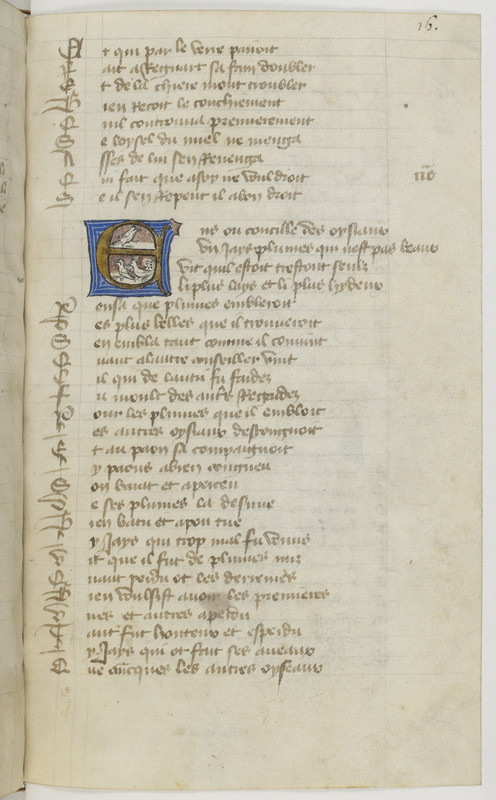 16.
Et qui par le verre pavoit
ait a Regnart sa fain doubler
Et de la chiere mont troubler
ien recoit le conchiement
uil controuva premierement
e loysel du miel ne menga
sses de lui sen Revenga
ui fait que a soy ne vouldroit
e il sen Repent il a bon droit
Ens ou concille des oysiaux
Un Jays plumes qui nest pas beaux
Vit quil estoit trestout seulz
li plus lays et li plus hydeux
ensa que plumes embleroit
es plus belles que il trouveroit
en embla tant comme il convint
vant a lautre conseiller vint
il qui de lautrui fu fardez
u moult des autres Regardez
our les plumes que il embloit
es autres oysiaux desseognoit
t au paon sa compaignoit
y paons a bien congneu
on barat et aperceu
e ses plumes la desnue
ien batu et a pou tue
y Jays qui trop mal fu venus
it que il fut de plumes nuz
vant perdu ot les derienes
ien voulsist avoir les premieres
nes et autres a perdu
ant fut honteux et esperdu
y Jays qui ot fait ses aveaux
ue oncques les autres oyseaux